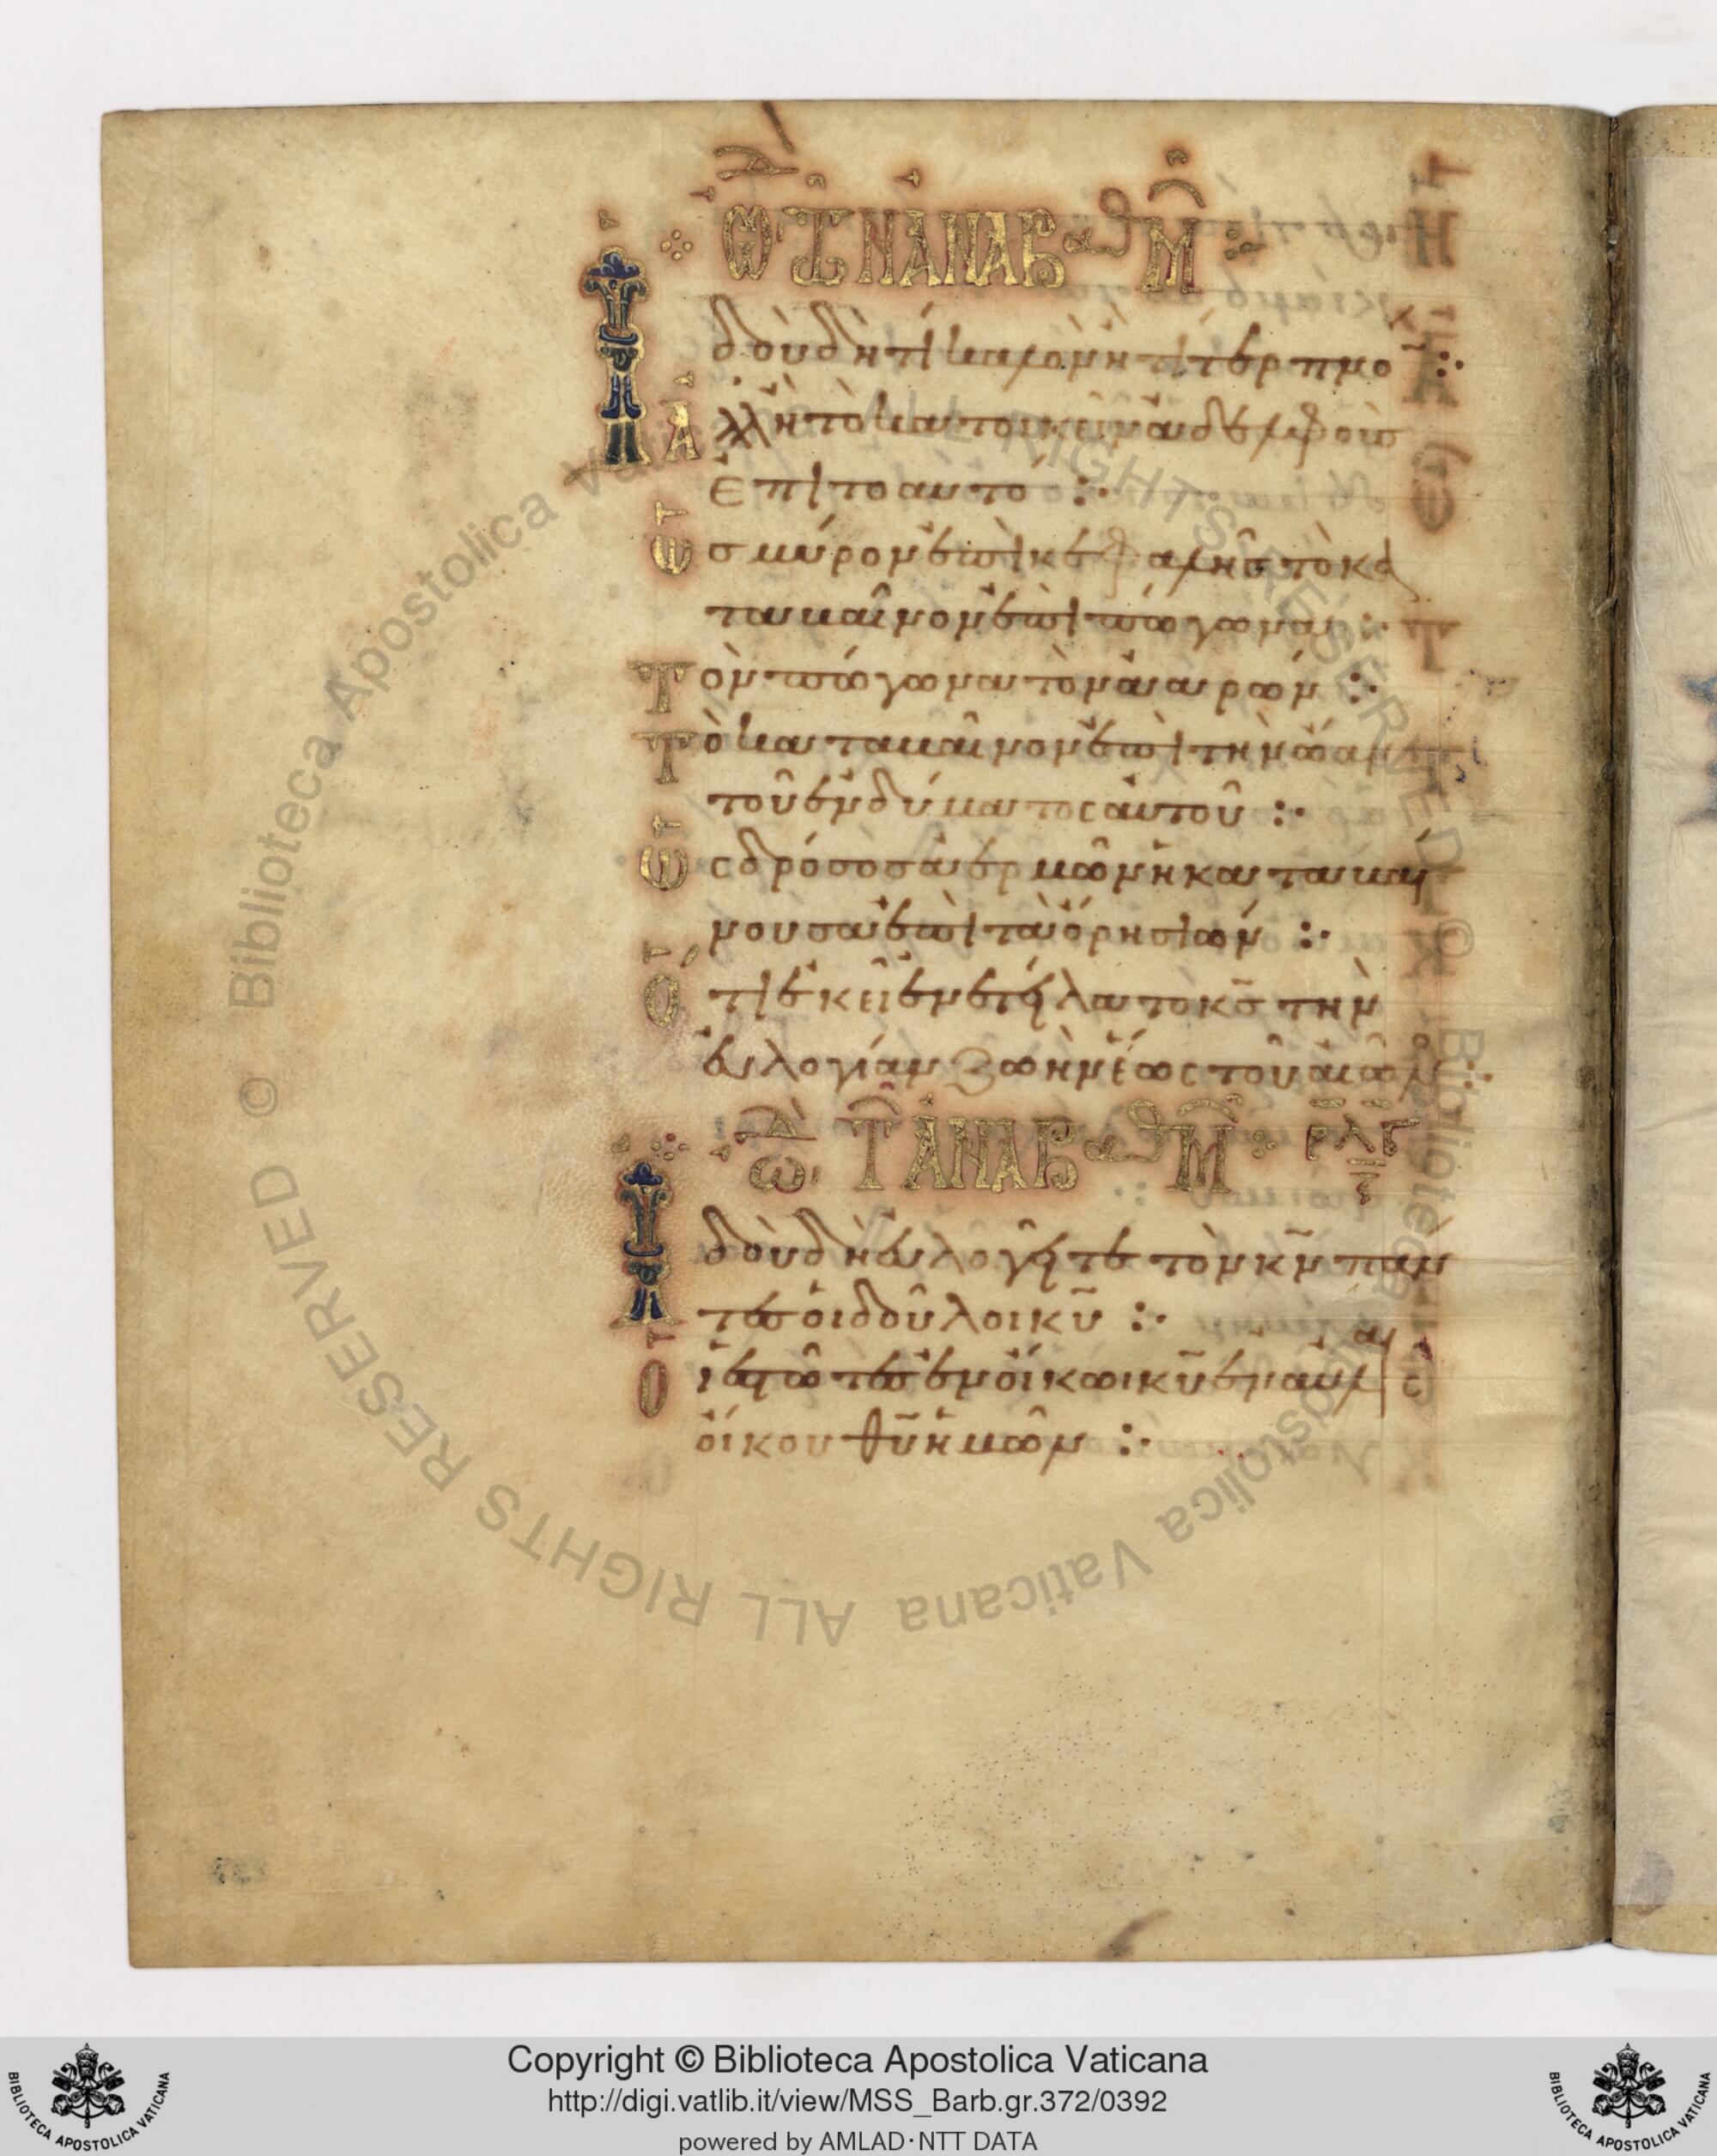 ᾨδὴ τῶν ἀναβαθμῶν
Ἰδοὺ δὴ τί καλὸν ἢ τί τερπνὸ̅ :·
Ἀλλ' ἢ τὸ κατοικεῖν ἀδελφοὺς
ἐπιτοαυτό :·
Ὡς μύρον ἐπὶ κεφαλῆς τὸ κα
ταβαῖνον ἐπὶ πώγωνα :·
Τὸν πώγωνα τὸν ἀαρών :·
Τὸ καταβαῖνον ἐπὶ τὴν ὤαν
τοῦ ἐνδύματος αὐτοῦ :·
Ὡς δρόσος ἀερμὼν ἡ καταβαί
νουσα ἐπὶ τὰ ὄρη σιών :·
Ὅτι ἐκεῖ ἐνετείλατο κ̅ς̅ τὴν
εὐλογίαν ζωὴν ἕως τοῦ αἰῶνο :·
ᾨδὴ τῶν ἀναβαθμῶν ρλγ
Ἰδοὺ δὴ εὐλογεῖτε τὸν κ̅ν̅ πάν
τες οἱ δοῦλοι κ̅υ̅ :·
Οἱ ἑστῶτες ἐν οἴκωι κ̅υ̅ ἐν αὐλαῖ
οἴκου θ̅υ̅ ἡμῶν :·
© Biblioteca Apostolica Vaticana ALL RIGHTS RESERVED © Biblioteca Apostolica Vaticana ALL RIGHTS RESERVED
Copyright © Biblioteca Apostolica Vaticana
http://digi.vatlib.it/view/MSS_Barb.gr.372/0392
powered by AMLAD·NTT DATA
BIBLIOTECA APOSTOLICA VATICANA
BIBLIOTECA APOSTOLICA VATICANA